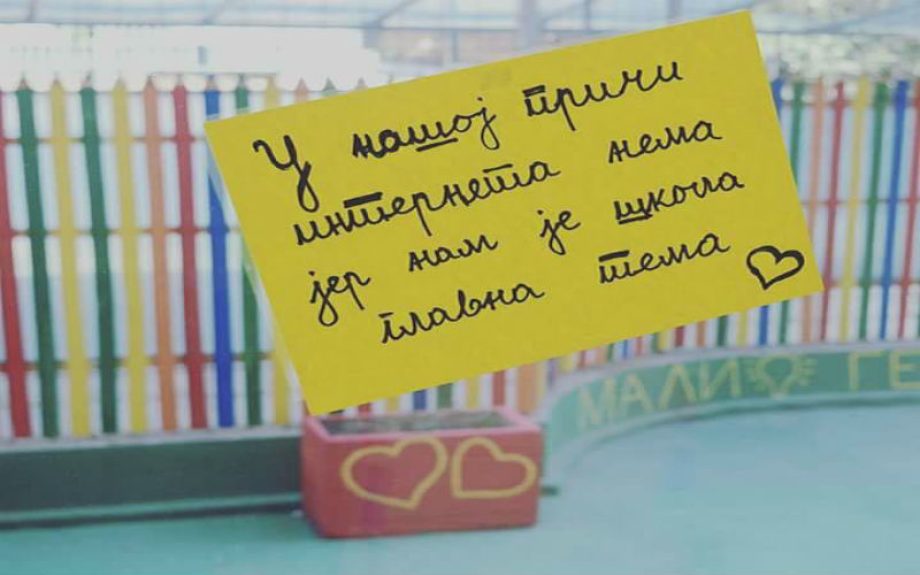 У нашој причи
интернета нема
јер нам је школа
главна тема
МАЛИ ГЕ